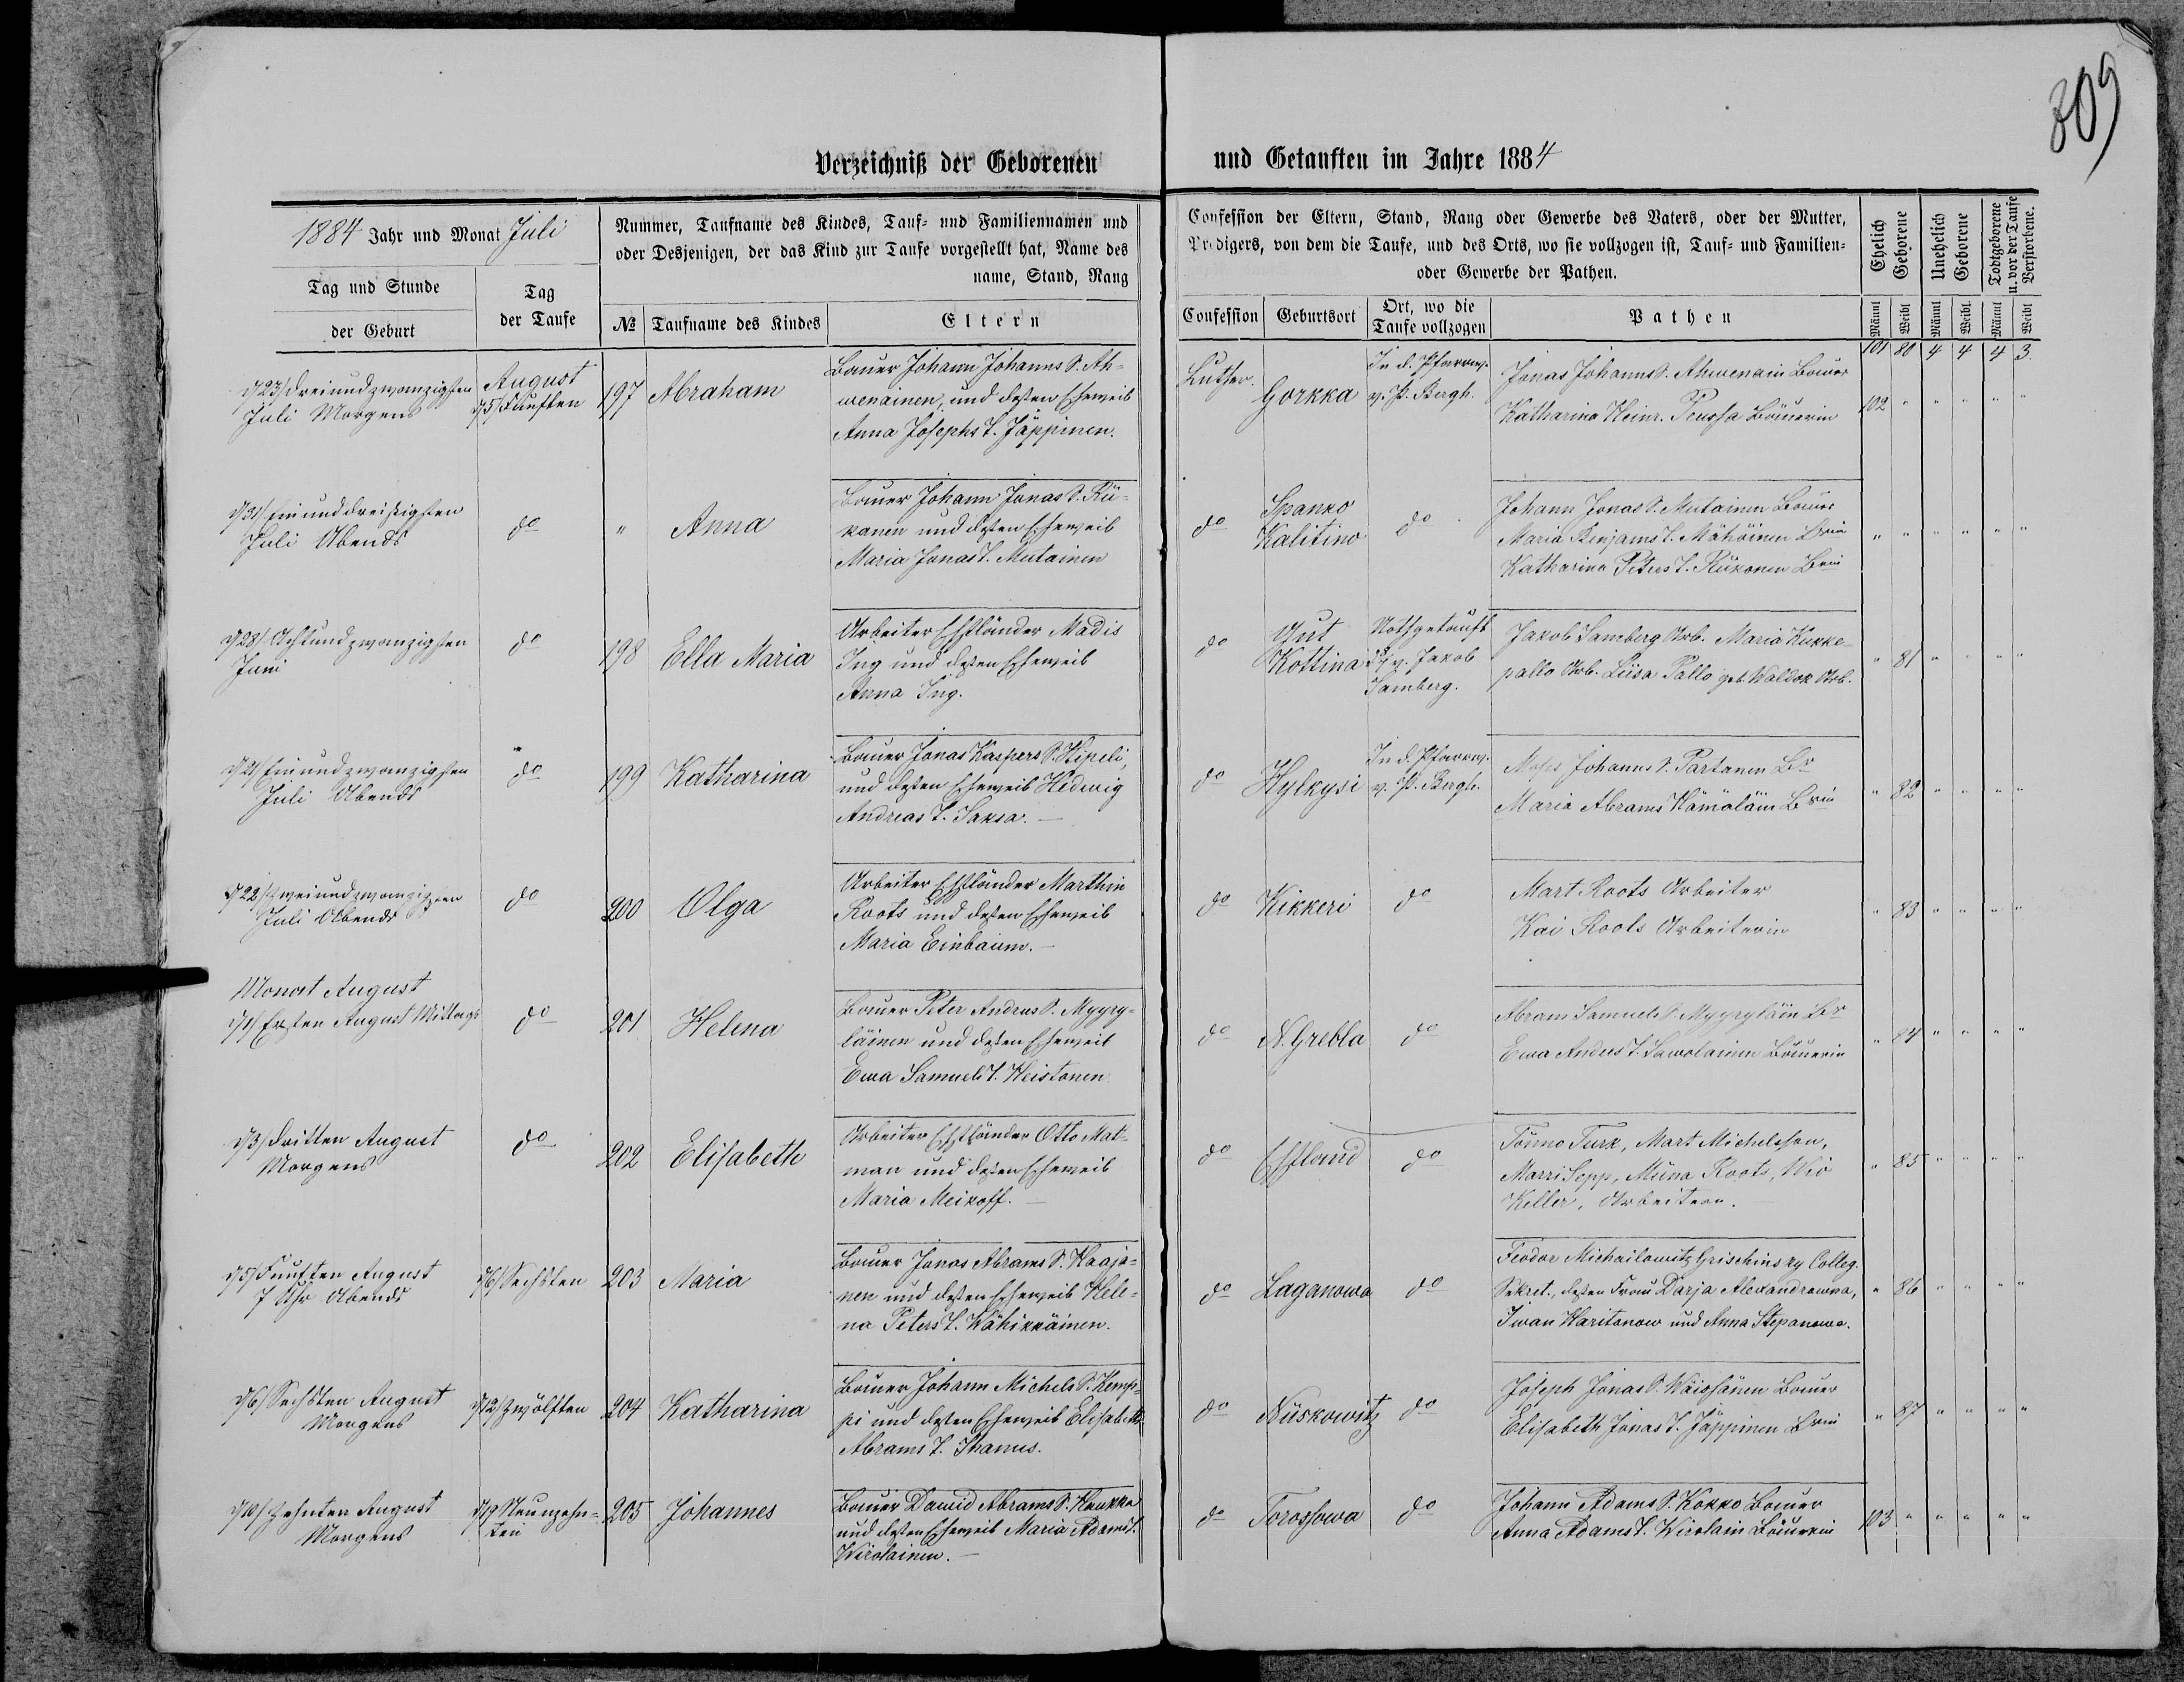 309
Verzeichniß der Geborenen und Getauften im Jahre 1884
1884 Jahr und Monat Juli
Nummer, Taufname des Kindes, Tauf- und Familiennamen und
oder Desjenigen, der das Kind zur Taufe vorgestellt hat, Name des
name, Stand, Rang
Confession der Eltern, Stand, Rang oder Gewerbe des Vaters, oder der Mutter,
Predigers, von dem die Taufe, und des Orts, wo sie vollzogen ist, Tauf- und Familien-
oder Gewerbe der Pathen.
Ehelich Geborene
Unehelich Geborene
Todtgeborene u. vor der Taufe Verstorbene.
Tag und Stunde
der Geburt
Tag
der Taufe
№ Taufname des Kindes
Eltern
Confession
Geburtsort
Ort, wo die
Taufe vollzogen
Pathen
Männl Weibl Männl Weibl. Männl Weibl
101 80 4 4 4 3.
d/23/ dreiundzwanzigsten
Juli Morgens
August
d/5/ Fünften
197 Abraham
Bauer Johann Johanns S. Ah-
wenainen, und dessen Eheweib
Anna Josephs T. Jäppinen.
Luther.
Gorkka
In d. Pfarrw.
v. P. Bergh.
Jonas Johanns S. Ahwenain Bauer
Katharina Heinr. Peussa Bäuerin
102 " " " " "
d/31/ Einunddreißigsten
Juli Abends
do
" Anna
Bauer Johann Jonas S. Rü-
kanen und dessen Eheweib
Maria Jonas T. Mutainen
do
Spanko
Kalitino
do
Johann Jonas S. Mutainen Bauer
Maria Benjams T. Mähöinen Brin
Katharina Peters T. Rükonen Brin
" " " " " "
d/28/ Achtundzwanzigsten
Juni
do
198 Ella Maria
Arbeiter Esthländer Madis
Ing und dessen Eheweib
Anna Ing.
do
Gut
Kottina
Nothgetauft
v. Jakob
Samberg.
Jakob Samberg Arb. Maria Kukke-
pallo Arb. Liisa Pallo geb. Waldok Arb.
" 81 " " " "
d/21/ Einundzwanzigsten
Juli Abends
do
199 Katharina
Bauer Jonas Kaspers S. Hipeli,
und dessen Eheweib Hedwig
Andreas T. Saksa. —
do
Hylkysi
In d. Pfarrw.
v. P. Bergh.
Moses Johanns S. Partanen Br
Maria Abrams Hämäläin Brin
" 82 " " " "
d/22/ Zweiundzwanzigsten
Juli Abends
do
200 Olga
Arbeiter Esthländer Marthin
Roots und dessen Eheweib
Maria Einbaum. —
do
Kikkeri
do
Mart Roots Arbeiter
Kai Roots Arbeiterin
" 83 " " " "
Monat August
d/1/ Ersten August Mittags
do
201 Helena
Bauer Peter Andrus S. Myyry-
läinen und dessen Eheweib
Ewa Samuels T. Heistonen
do
N. Grebla
do
Abram Samuels S. Myyryläin Br
Ewa Andus T. Sawolainen Bäuerin
" 84 " " " "
d/3/ dritten August
Morgens
do
202 Elisabeth
Arbeiter Esthländer Otto Mat-
man und dessen Eheweib
Maria Meikoff. —
do
Esthland
do
Tönno Turk, Mart Michelson,
Marri Sepp, Miina Roots, Wio
Keller, Arbeiter.
" 85 " " " "
d/5/ Fünften August
7 Uhr Abends
d/6/ Sechsten
203 Maria
Bauer Jonas Abrams S. Haaja-
nen und dessen Eheweib Hele-
na Peters T. Wähikkäinen.
do
Laganowa
do
Feodor Michailowitz Grischinsky Colleg.
Sekret., dessen Frau Darja Alexandrowna,
Iwan Haritonow und Anna Stepanowa.
" 86 " " " "
d/6/ Sechsten August
Morgens
d/12/ Zwölften
204 Katharina
Bauer Johann Michels S. Kemp-
pi und dessen Eheweib Elisabeth
Abrams T. Ihanus.
do
Nüskowitz
do
Joseph Jonas S. Wäisänen Bauer
Elisabeth Jonas T. Jäppinen Brin
" 87 " " " "
d/10/ Zehnten August
Morgens
d/19/ Neunzehn-
ten
205 Johannes
Bauer Dawid Abrams S. Haukka
und dessen Eheweib Maria Adams T.
Wirolainen. —
do
Torossowa
do
Johann Adams S. Kokko Bauer
Anna Adams T. Wirolain Bäuerin
103 " " " " "